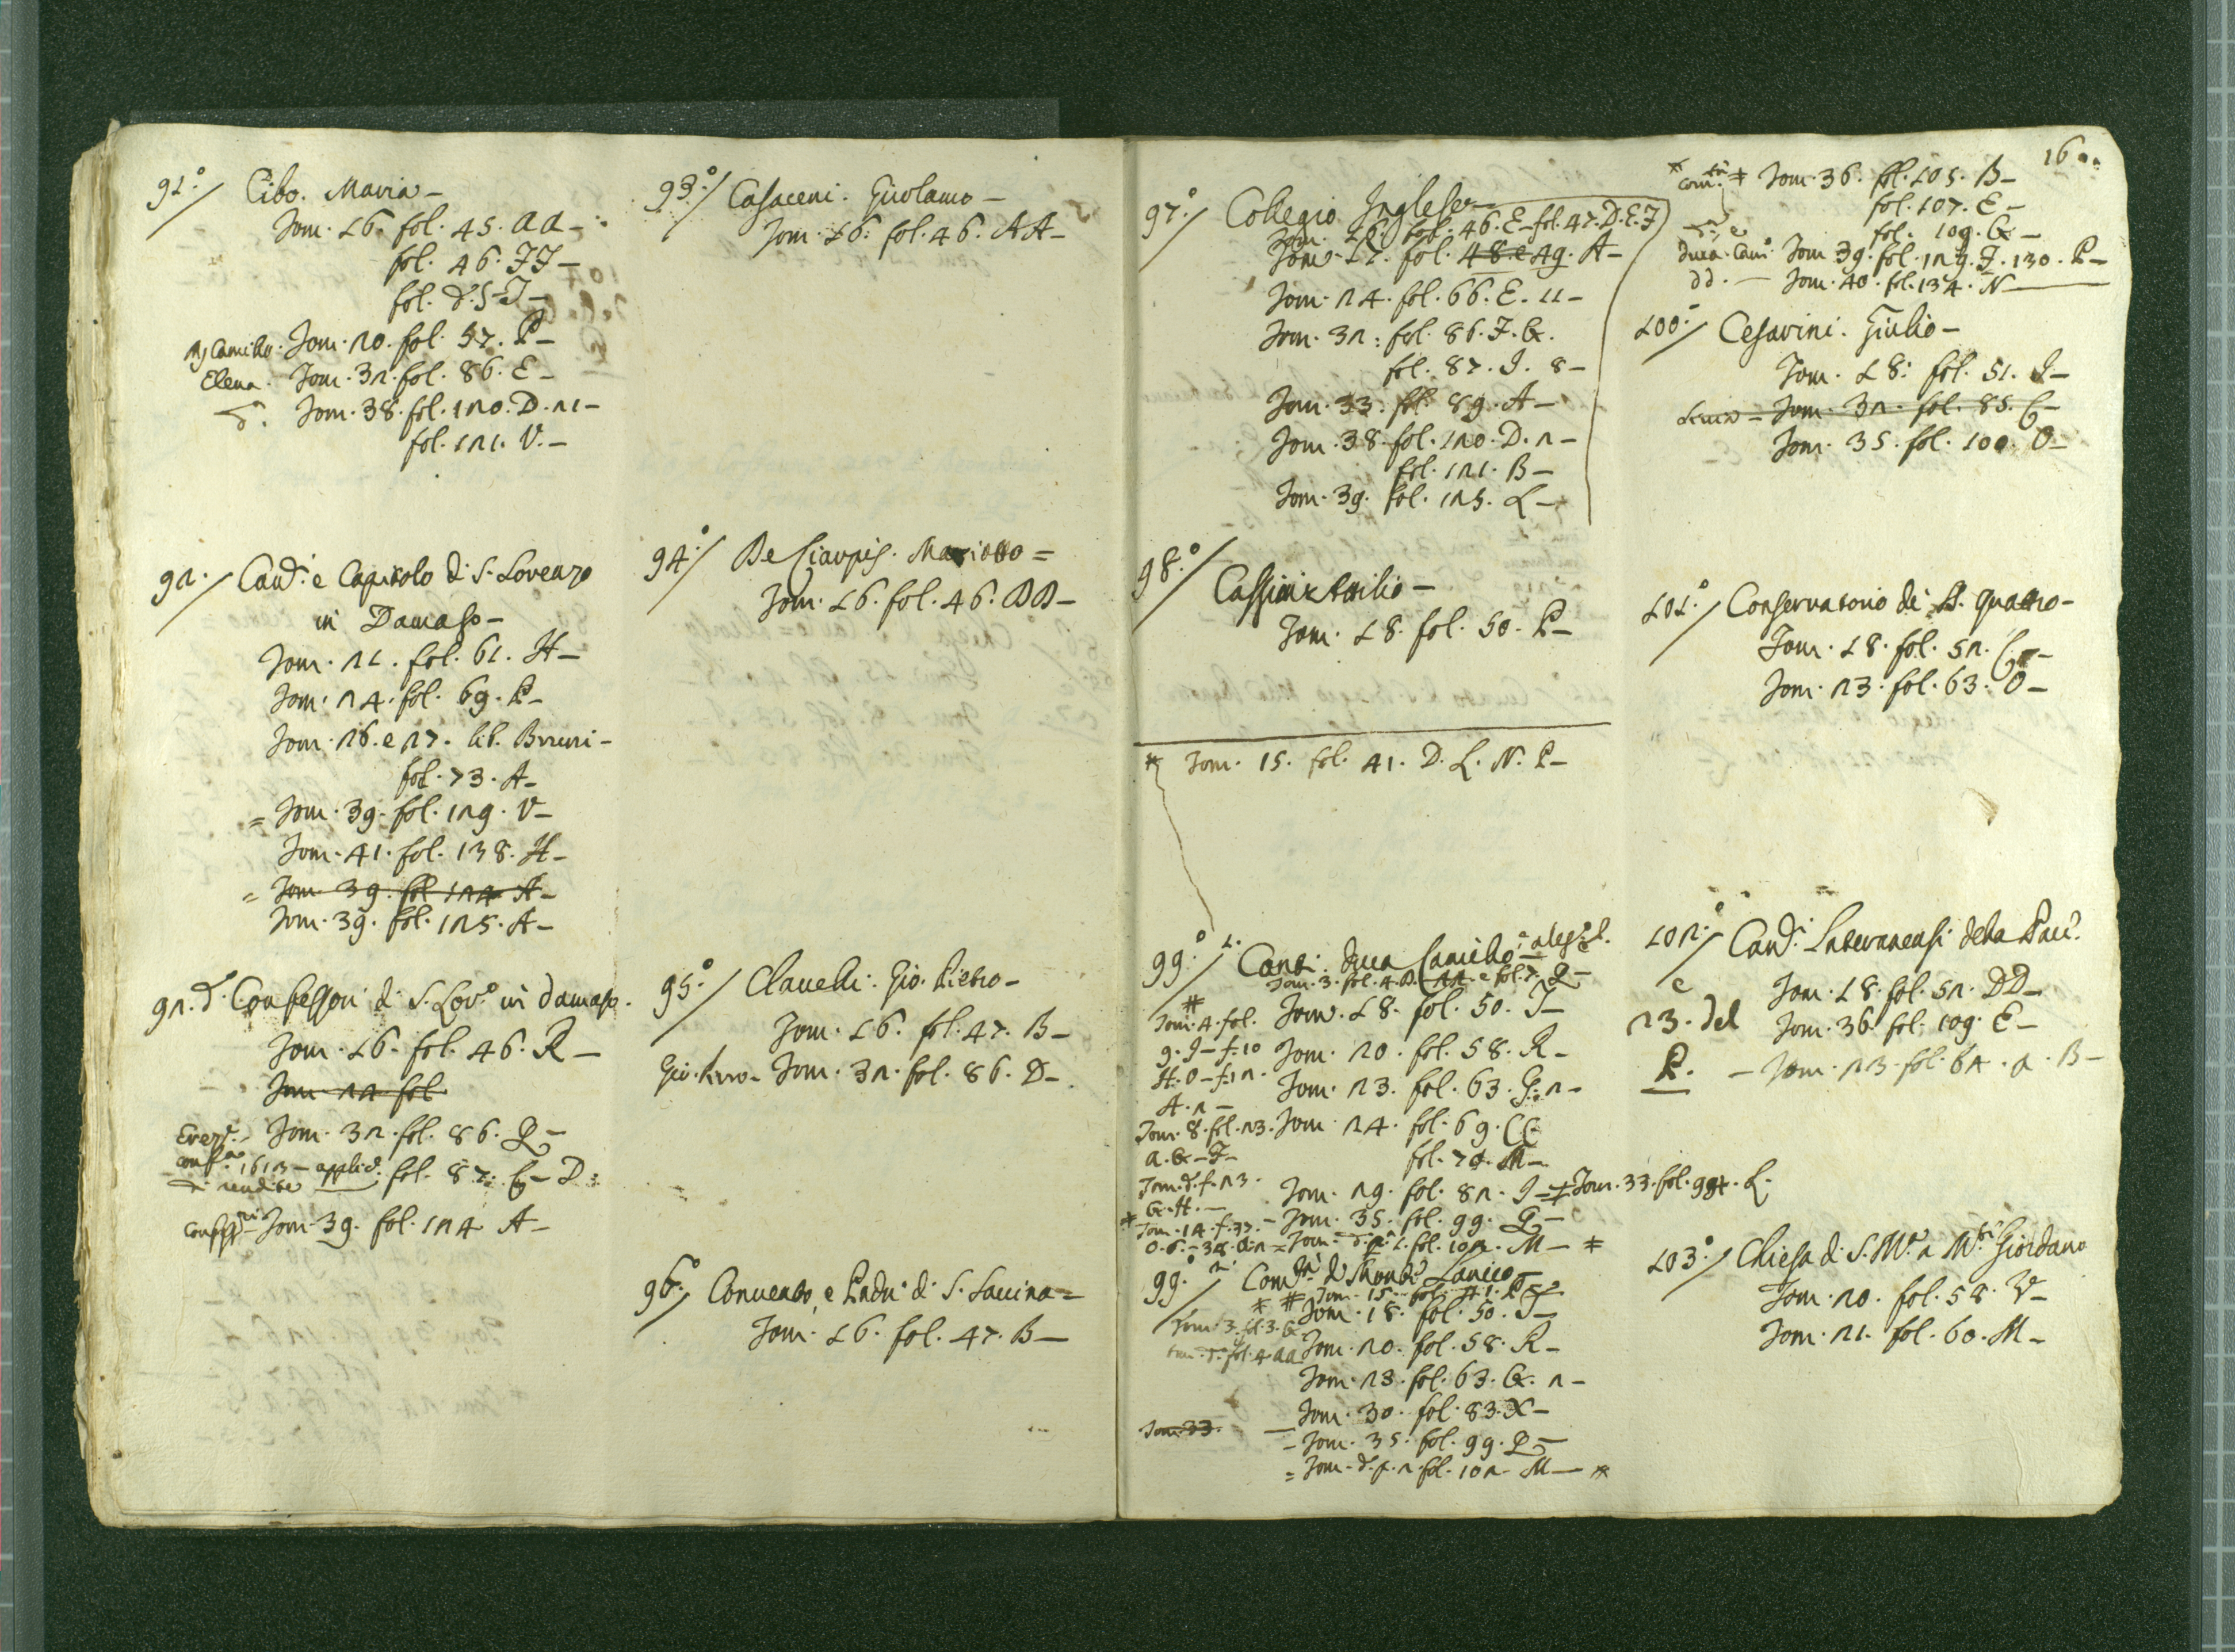 91.°/ Cibo. Maria -
Tom. 16. fol. 45. aa -
fol. 46. FF -
fol. d. S - T -
Camillo. Tom. 20. fol. 57. P -
Elena. Tom. 32. fol. 86. E -
d. Tom. 38. fol. 120. D. 21 -
fol. 121. V. -
92./ Can.ci e Capitolo di S. Lorenzo
in Damaso -
Tom. 21. fol. 61. H -
Tom. 24. fol. 69. P -
Tom. 26. e 27. lib. Bruni -
fol. 73. A -
= Tom. 39. fol. 129. V -
Tom. 41. fol. 138. H -
= Tom. 39. fol. 124 A -
Tom. 39. fol. 125. A -
92. d. Confessori di S. Lor.° in damaso.
Tom. 16. fol. 46. R -
Tom. 22 fol.
Tom. 32. fol. 86. Q -
1612 - applic. fol. 87. G - D :
di rendite
Tom. 39. fol. 124 A -
93.°/ Casaceni. Girolamo -
Tom. 16: fol. 46. AA -
94.°/ De Ciarpis. Mariotto =
Tom. 16. fol. 46. DD -
95.°/ Clavelli. Gio. Pietro -
Tom. 16. fol. 47. B -
Gio. Pietro - Tom. 32. fol. 86. D -
96.°/ Convento, e Padri di S. Savina =
Tom. 16. fol. 47. B -
16
97.°/ Collegio Inglese -
Tom. 16. fol. 46. E - fol. 47. D. E. F
Tom. 17. fol. 48. e 49. A -
Tom. 24. fol. 66. E. 11 -
Tom. 32: fol. 86. F. G.
fol. 87. I. 8 -
Tom. 33: fol. 89. A -
Tom. 38. fol. 120. D. 2 -
fol. 121. B -
Tom. 39. fol. 125. L -
98.°/ Cassini Attilio -
Tom. 18. fol. 50. P -
* Tom. 15. fol. 41. D. L. N. P -
99.° 1./ Conti. Duca Camillo
Tom. 3. fol. 4. D. AA. e fol. 7. Q -
# Tom. 4. fol. 9. I - f. 10
H. O - f. 12.
A. 2 -
Tom. 8. fol. 23.
a. G - F -
Tom. d. f. 23.
G. H. -
* Tom. 14. f. 37.
Tom. 18. fol. 50. T -
Tom. 20. fol. 58. R -
Tom. 23. fol. 63. G. 2 -
Tom. 24. fol. 69. CC
fol. 70. M -
Tom. 29. fol. 82. I - # Tom. 33. fol. 94. L.
- Tom. 35. fol. 99. Q -
= Tom. d. p. 1. fol. 102. M - *
99.° 2./ Com.tà di Monte Lanico -
* # Tom. 15 - fol. 41. P
Tom. 18. fol. 50. T -
Tom. 3. fol. 3. G
Tom. d. fol. 4. aa Tom. 20. fol. 58. R -
Tom. 23. fol. 63. G. 2 -
Tom. 30. fol. 83. X -
Tom. 33.
- Tom. 35. fol. 99. Q -
= Tom. d. p. 2. fol. 102 - M - *
* Com.tà # Tom. 36. fol. 105. B -
fol. 107. E -
fol. 109. G -
Duca Cam.° Tom. 39. fol. 129. F. 130. P -
dd. - Tom. 40. fol. 134. N
100.°/ Cesarini. Giulio -
Tom. 18: fol. 51. I -
Tom. 32. fol. 85. G -
Tom. 35. fol. 100. O -
101.°/ Conservatorio de SS. Quattro -
Tom. 18. fol. 52. G -
Tom. 23. fol. 63. O -
102.°/ Can.ci Lateranensi della Pace
e 23. del P.
Tom. 18. fol. 52. DD -
Tom. 36. fol. 109. E -
- Tom. 23. fol. 64. a. B -
103.°/ Chiesa di S. M.a a M.te Giordano
Tom. 20. fol. 58. V -
Tom. 21. fol. 60. M -